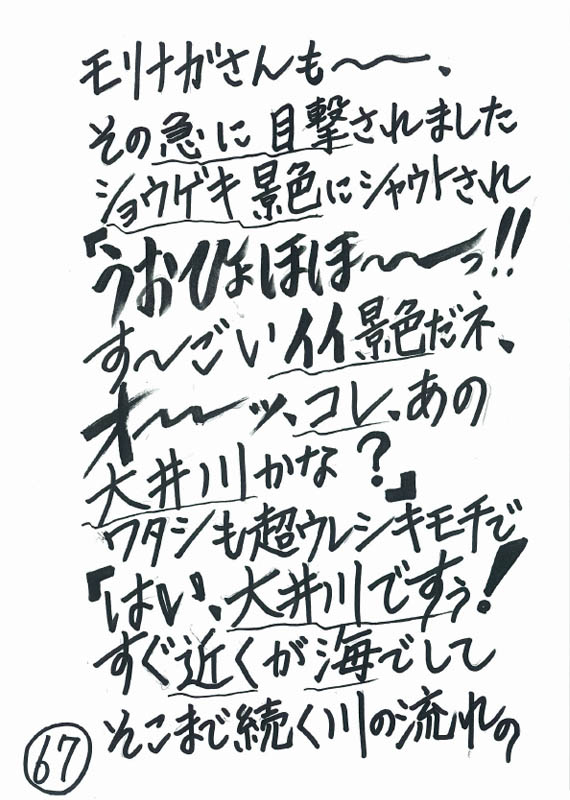 モリナガさんも〜〜、
その急に目撃されました
ショウゲキ景色にシャウトされ
『うおひょほほ〜〜っ!!
す〜ごいイイ景色だネ、
オ〜〜ッ、コレ、あの
大井川かな?』
ワタシも超ウレシキモチで
『はい、大井川ですぅ!
すぐ近くが海でして
そこまで続く川の流れの
67